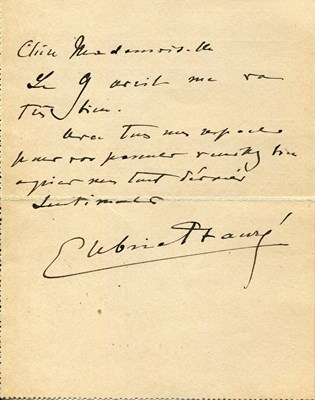 Chère Mademoiselle
Le 9 avril me va
Très bien.
Avec tous mes
pour vos veuillez bien
agréer mes tout dévoués
Sentiments
Gabriel Fauré